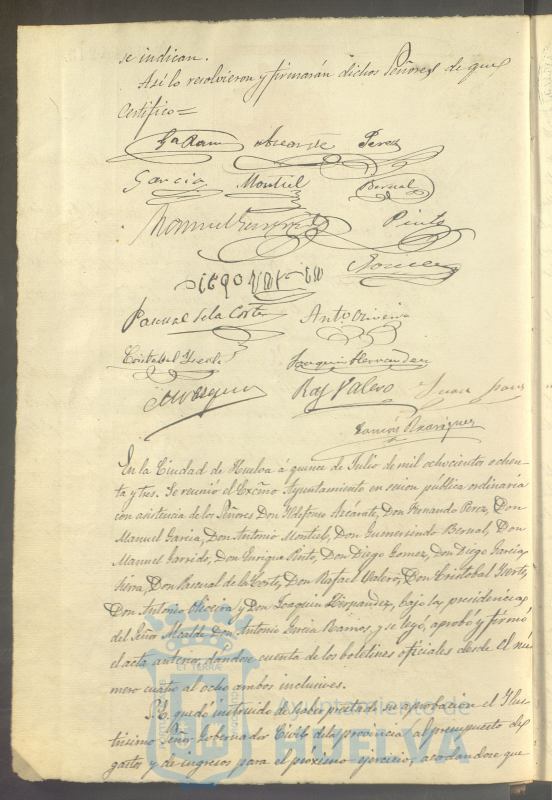 se indican.
Asi lo resolvieron y firmarán dichos Señores de que
Certifico=
Azcarate Perez
Garcia Montiel Bernal
Manuel Pinto
Gomez
Pascual de la Corte Antº Oliveira
Cristobal Joaquin Hernandez
Vazquez Raf Valero Juan
Ramon Rodriguez
En la Ciudad de Huelva á quince de Julio de mil ochocientos ochen-
ta y tres. Se reunió el Excmo Ayuntamiento en sesion pública ordinaria
con asistencia de los Señores Don Ildefonso Azcárate, Don Fernando Perez, Don
Manuel Garcia, Don Antonio Montiel, Don Gumersindo Bernal, Don
Manuel Garrido, Don Enrique Pinto, Don Diego Gomez, Don Diego Garcia
Sierra, Don Pascual de la Corte, Don Rafael Valero, Don Cristobal
Don Antonio Oliveira y Don Joaquin Hernandez, bajo la presidencia
del Señor Alcalde Don Antonio Garcia Ramos, y se leyó, aprobó y firmó
el acta anterior, dandose cuenta de los boletines oficiales desde el nú-
mero cuatro al ocho ambos inclusives.
S.E. quedó instruido de haber prestado su aprobacion el Ilus-
trisimo Señor Gobernador Civil de la provincia al presupuesto de
gastos y de ingresos para el próximo ejercicio, acordandose que
Ayuntamiento de
HUELVA